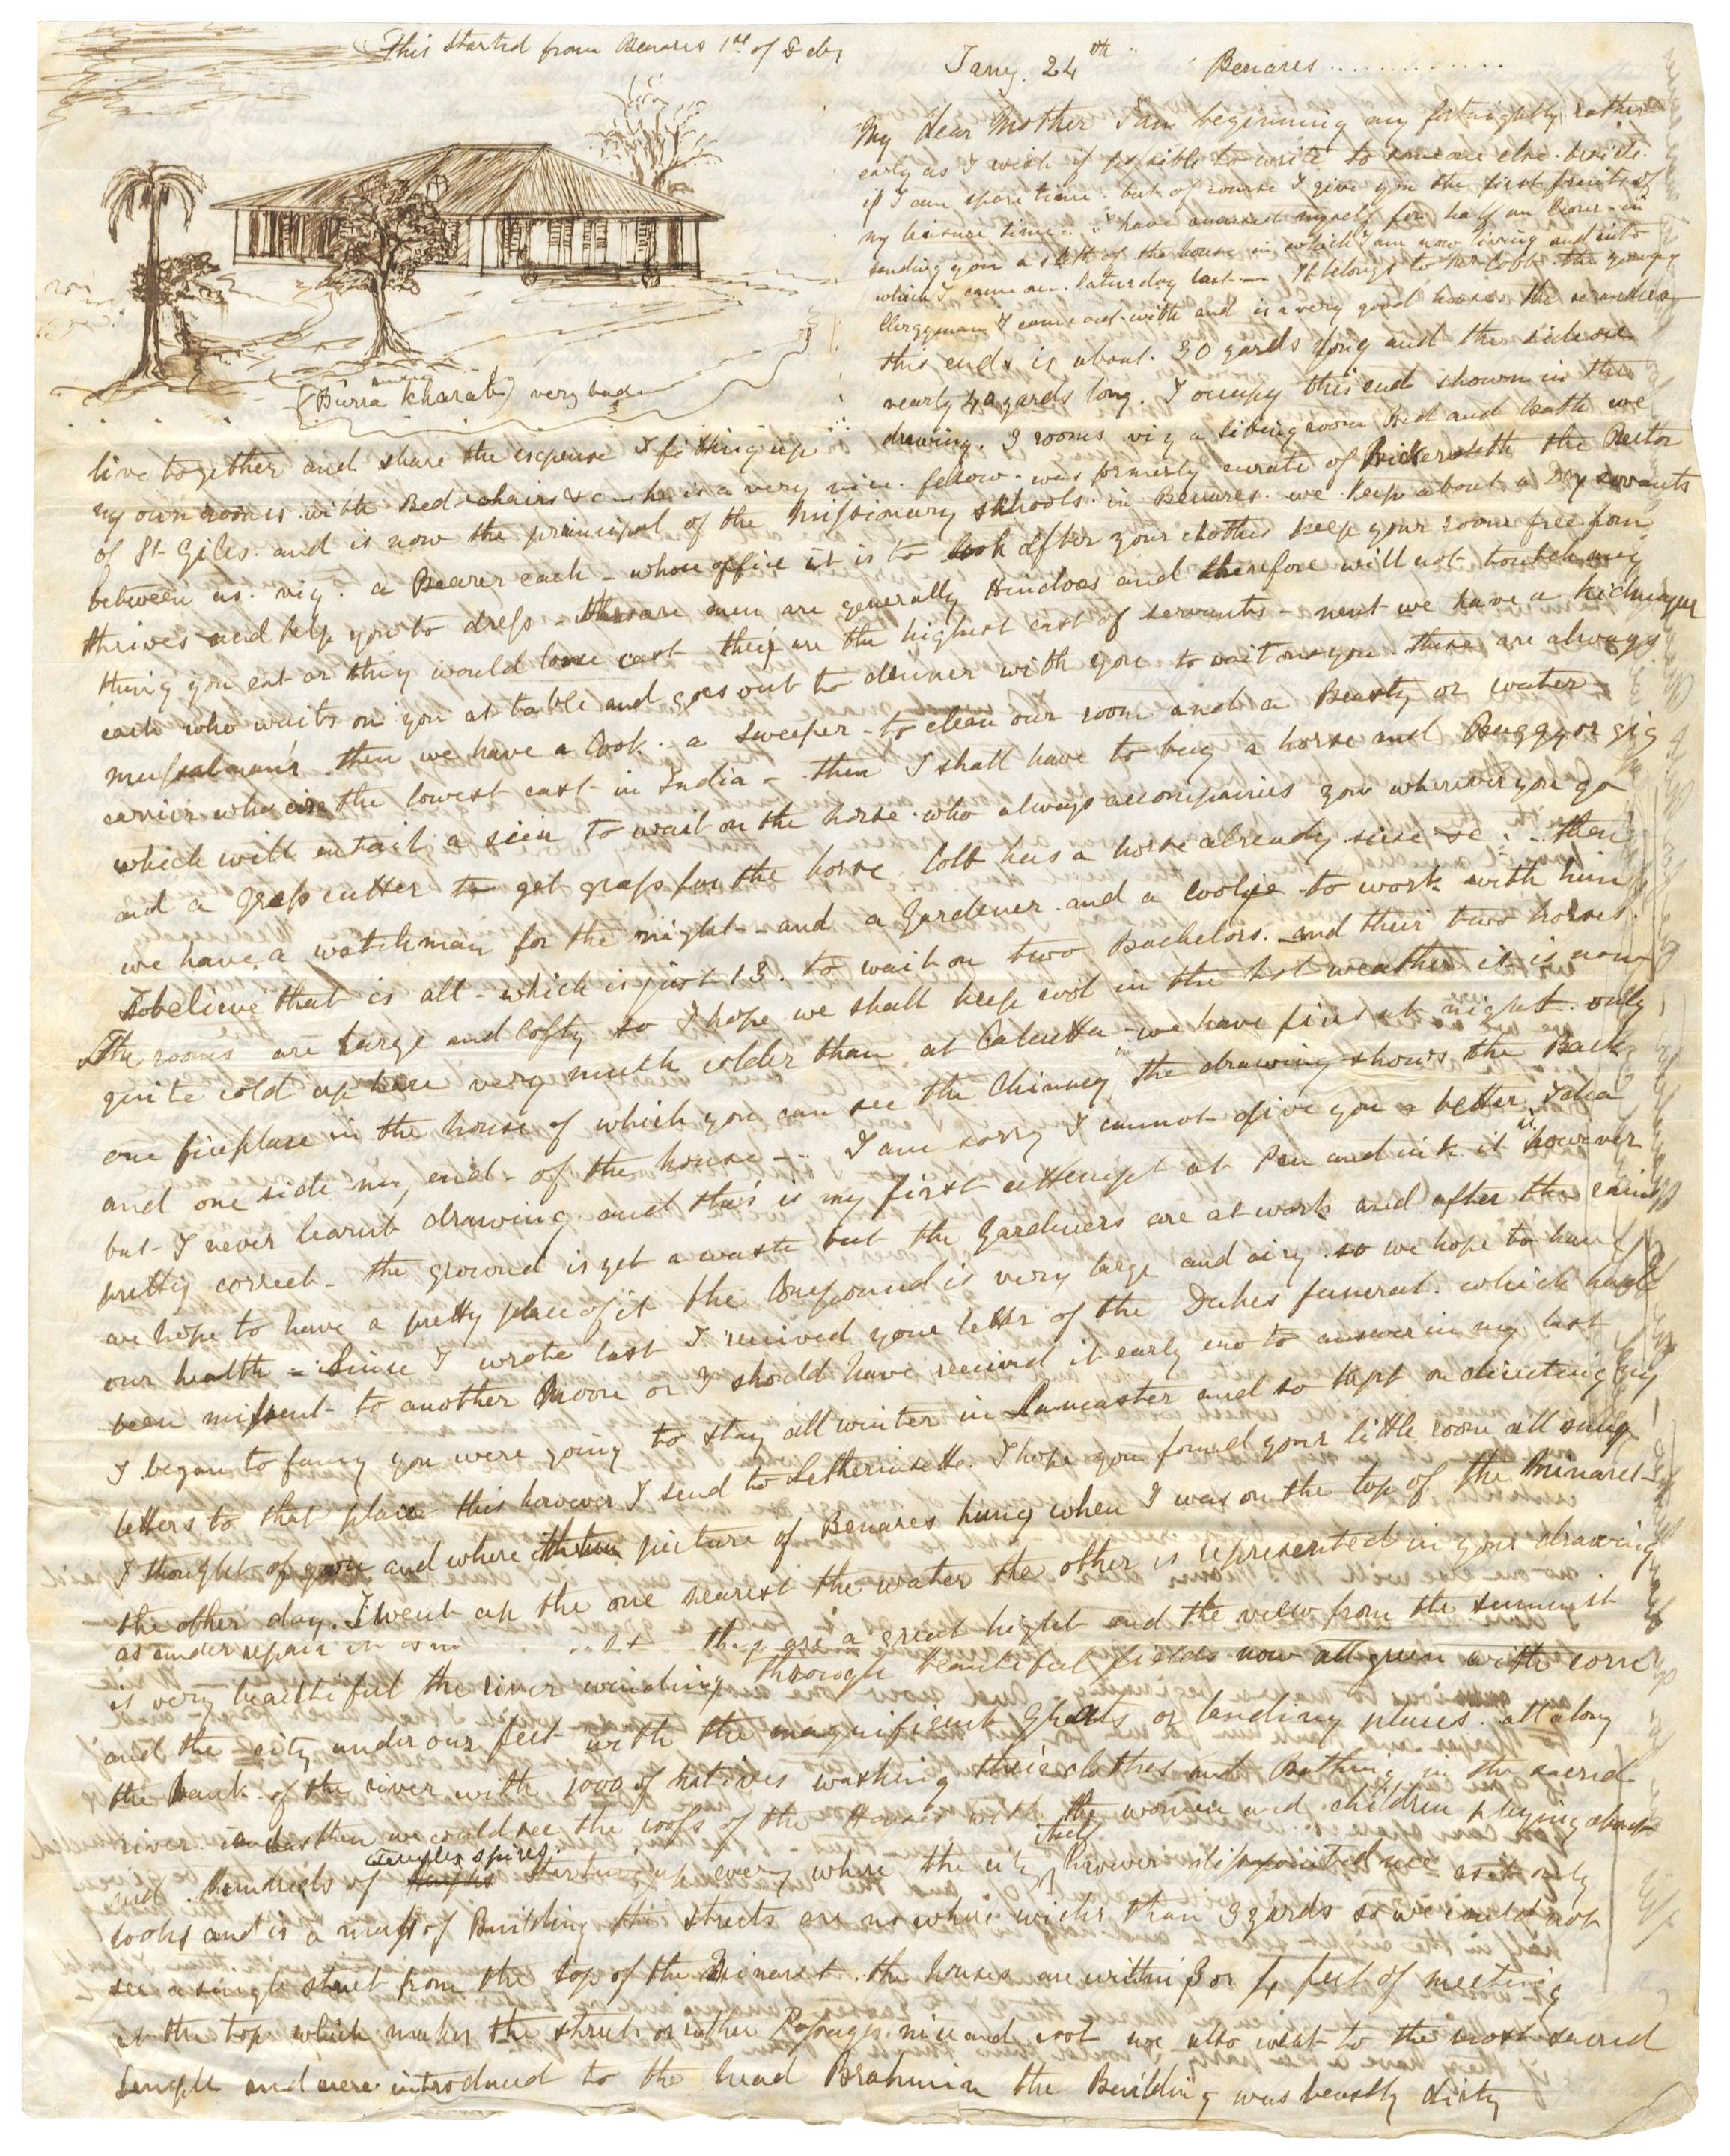 This started from Benares 1st of Feby
Jany. 24th Benares
My dear Mother I am beginning my fortnightly rather
early as I wish if possible to write to someone else beside
if I can spare time. but of course I give you the first fruits of
my leisure time. I have amused myself for half an hour in
sending you a of the house in which I am now living and into
which I came on Saturday last - It belongs to Mr Cobb the young
Clergyman I came out with and is a very good house the verandah
this end is about 30 yards long and the side one
nearly 40 yards long. I occupy this end shown in the
(Burra Kharab) very bad
drawing. 3 rooms viz a sitting room Bed and Bath we
live together and share the expense I fitting up
my own rooms with Bed chairs &c - he is a very nice fellow. was formerly curate of Bickersteth the Rector
of St Giles. and is now the principal of the Missionary schools in Benares. we keep about a Dz servants
between us. viz. a Bearer each - whose office it is to look after your clothes keep your room free from
thieves and help you to dress - these men are generally Hindoos and therefore will not touch any
thing you eat or they would loose cast they are the highest cast of servants - next we have a kidmagur
each who waits on you at table and goes out to dinner with you to wait on you. these are always
mussalman's then we have a Cook. a Sweeper - to clean our room and a Beasty or water
carrier who are the lowest cast in India - then I shall have to buy a horse and Buggy or gig
which will entail a to wait on the horse. who always accompanies you wherever you go
and a grass cutter to get grass for the horse Cobb has a horse already &c .. then
we have a watchman for the night - and a Gardener. and a coolie to work with him
I believe that is all - which is just 13. to wait on two Bachelors. and their two horses.
The rooms are large and lofty so I hope we shall keep cool in the hot weather it is now
quite cold up here very much colder than at Calcutta - we have fires at night. only
one fireplace in the house of which you can see the Chimney the drawing shows the Back
and one side my end - of the house - I am sorry I cannot give you a better Idea
but I never learnt drawing and this is my first attempt at Pen and ink it is however
pretty correct - the ground is yet a waste but the Gardeners are at work and after the rains
we hope to have a pretty place of it the Compound is very large and airy so we hope to have
our health - Since I wrote last I received your letter of the Dukes funeral. which had
been missent to another Moore or I should have received it early eno to answer in my last
I began to fancy you were going to stay all winter in Lancaster and so kept on directing my
letters to that place this however I send to Letheringsett. I hope you found your little room all snug
I thought of you and where picture of Benares hung when I was on the top of the Minaret
the other day. I went up the one nearest the water the other is represented in your drawing
as under repair they are a great hight and the view from the summit
is very beautiful the river winding through beautiful fields now all green with corn
and the city under our feet with the magnificent Ghats or landing places. all along
the bank of the river with 1000 of natives washing their clothes and Bathing in the sacred
river. and then we could see the roofs of the Houses with the women and children playing about
and Hundreds of temples spires starting up every where the city itself however disappointed me as it only
looks and is a mass of Building the streets are no where wider than 3 yards so we could not
see a single street from the top of the Minaret. the houses are within 3 or 4 feet of meeting
at the top which makes the streets or rather Passages nice and cool we also went to the most sacred
temple and were introduced to the head Brahmin the Building was beastly dirty